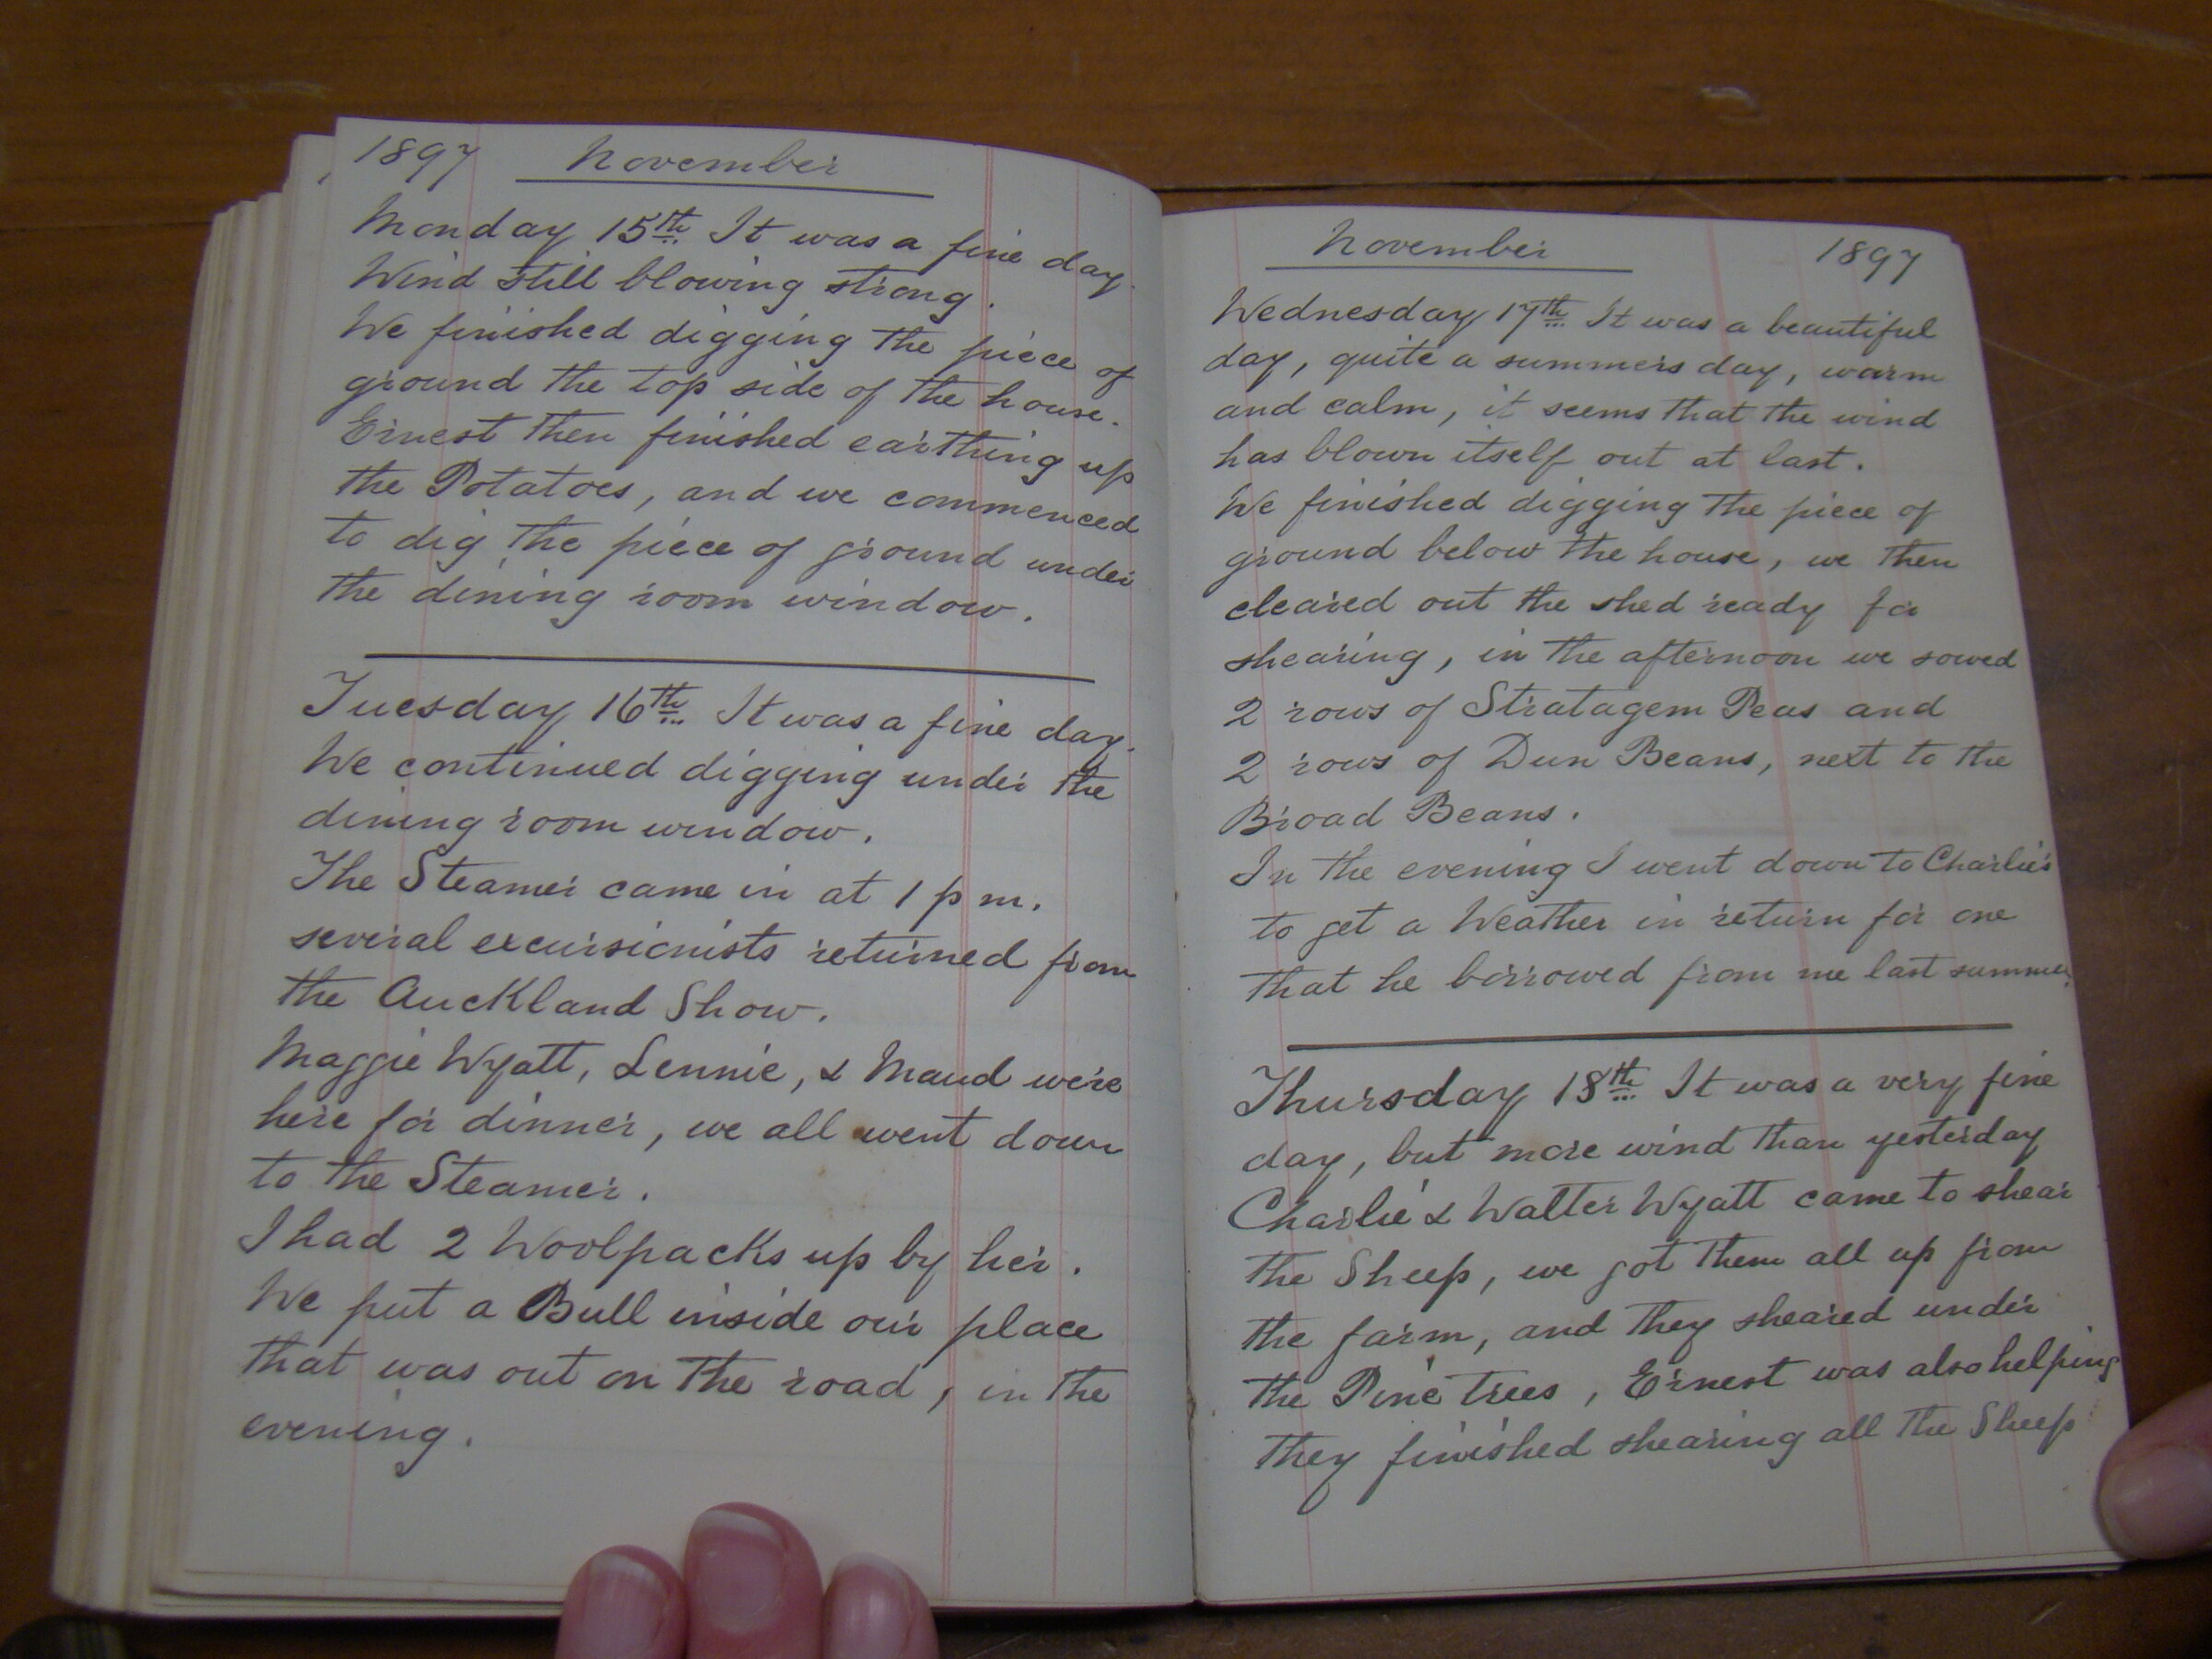 1897 November
Monday 15th It was a fine day.
Wind still blowing strong.
We finished digging the piece of
ground the top side of the house.
Ernest then finished earthing up
the Potatoes, and we commenced
to dig the piece of ground under
the dining room window.
Tuesday 16th It was a fine day.
We continued digging under the
dining room window.
The Steamer came in at 1 p m.
several excursionists returned from
the Auckland Show.
Maggie Wyatt, Lennie, & Maud were
here for dinner, we all went down
to the Steamer.
I had 2 Woolpacks up by her.
We put a Bull inside our place
that was out on the road, in the
evening.
November 1897
Wednesday 17th It was a beautiful
day, quite a summers day, warm
and calm, it seems that the wind
has blown itself out at last.
We finished digging the piece of
ground below the house, we then
cleared out the shed ready for
shearing, in the afternoon we sowed
2 rows of Stratagem Peas and
2 rows of Dun Beans, next to the
Broad Beans.
In the evening I went down to Charlie's
to get a Weather in return for one
that he borrowed from me last summer.
Thursday 18th It was a very fine
day, but more wind than yesterday
Charlie & Walter Wyatt came to shear
the Sheep, we got them all up from
the farm, and they sheared under
the Pine trees, Ernest was also helping
They finished shearing all the Sheep